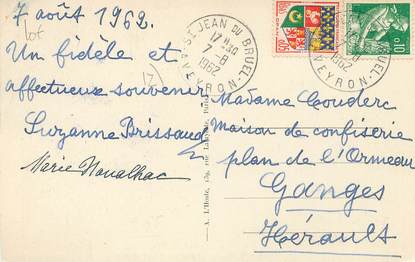 7 août 1962.
lot
Un fidèle et
affectueux souvenir
17
Suzanne Brissaud
Marie Noualhac
ST JEAN DU BRUEL
17H30
7-8
1962
AVEYRON
0,10
Madame Couderc
Maison de confiserie
plan de l'Ormeau
Ganges
Hérault